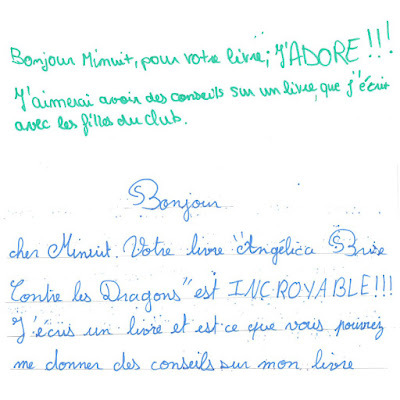 Bonjour Minuit, pour votre livre; J'ADORE!!!
J'aimerai avoir des conseils sur un livre que j'écrit
avec les filles du club.
Bonjour
cher Minuit. Votre livre "Angélica Brise
Contre les Dragons" est INCROYABLE!!!
J'écris un livre et est ce que vous pouvez
me donner des conseils sur mon livre